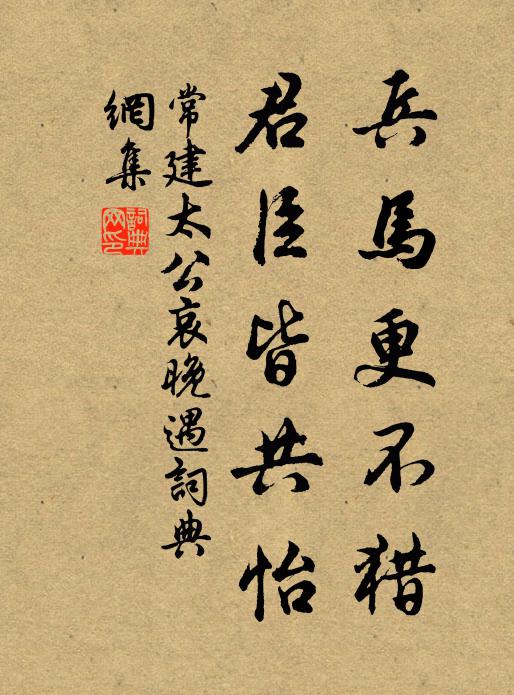 兵馬更不猎
君臣皆共怡
常建太公哀晚遇詞典
網集
詞典網印